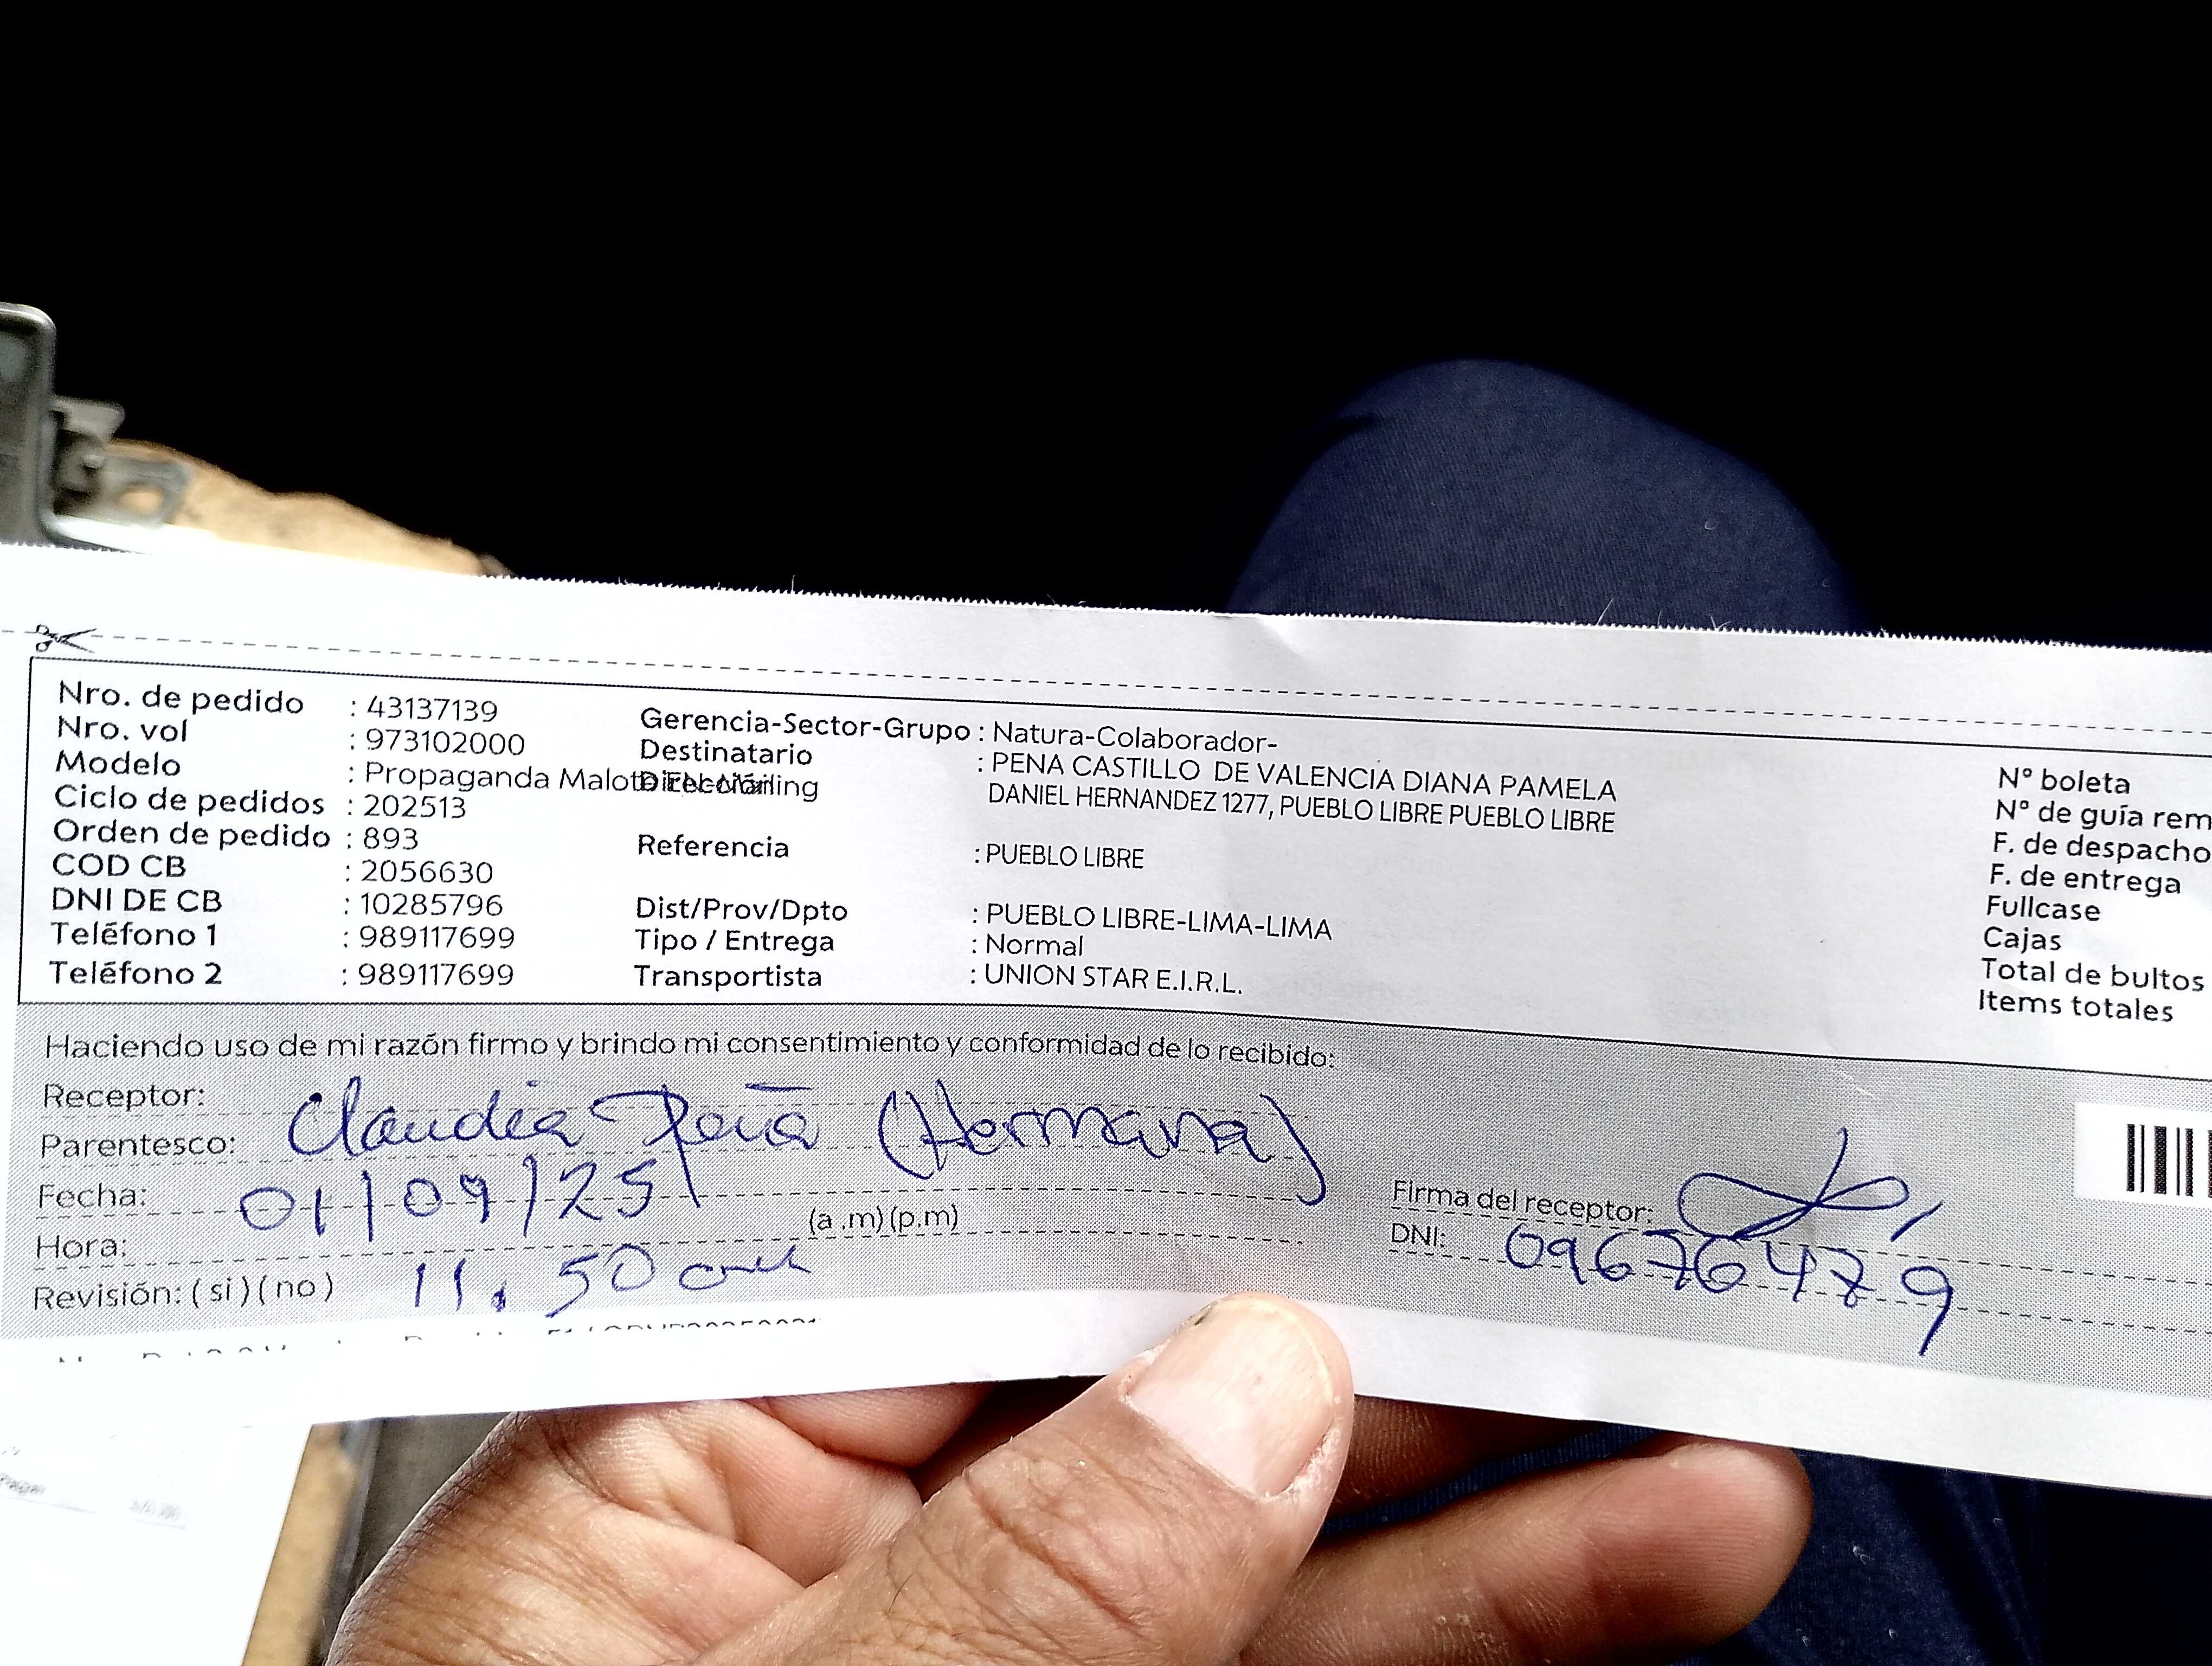 Nro. de pedido : 43137139
Nro. vol : 973102000
Modelo : Propaganda Malote EN-Mailing
Ciclo de pedidos : 202513
Orden de pedido : 893
COD CB : 2056630
DNI DE CB : 10285796
Teléfono 1 : 989117699
Teléfono 2 : 989117699
Gerencia-Sector-Grupo : Natura-Colaborador-
Destinatario : PENA CASTILLO DE VALENCIA DIANA PAMELA
Dirección DANIEL HERNANDEZ 1277, PUEBLO LIBRE PUEBLO LIBRE
Referencia : PUEBLO LIBRE
Dist/Prov/Dpto : PUEBLO LIBRE-LIMA-LIMA
Tipo / Entrega : Normal
Transportista : UNION STAR E.I.R.L.
N° boleta
N° de guía rem
F. de despacho
F. de entrega
Fullcase
Cajas
Total de bultos
Items totales
Haciendo uso de mi razón firmo y brindo mi consentimiento y conformidad de lo recibido:
Receptor: Claudia Peña (Hermana)
Parentesco:
Fecha: 01/09/25
Hora: (a .m) (p.m)
11.50 am
Revisión: ( si ) ( no )
Firma del receptor:
DNI: 09676479